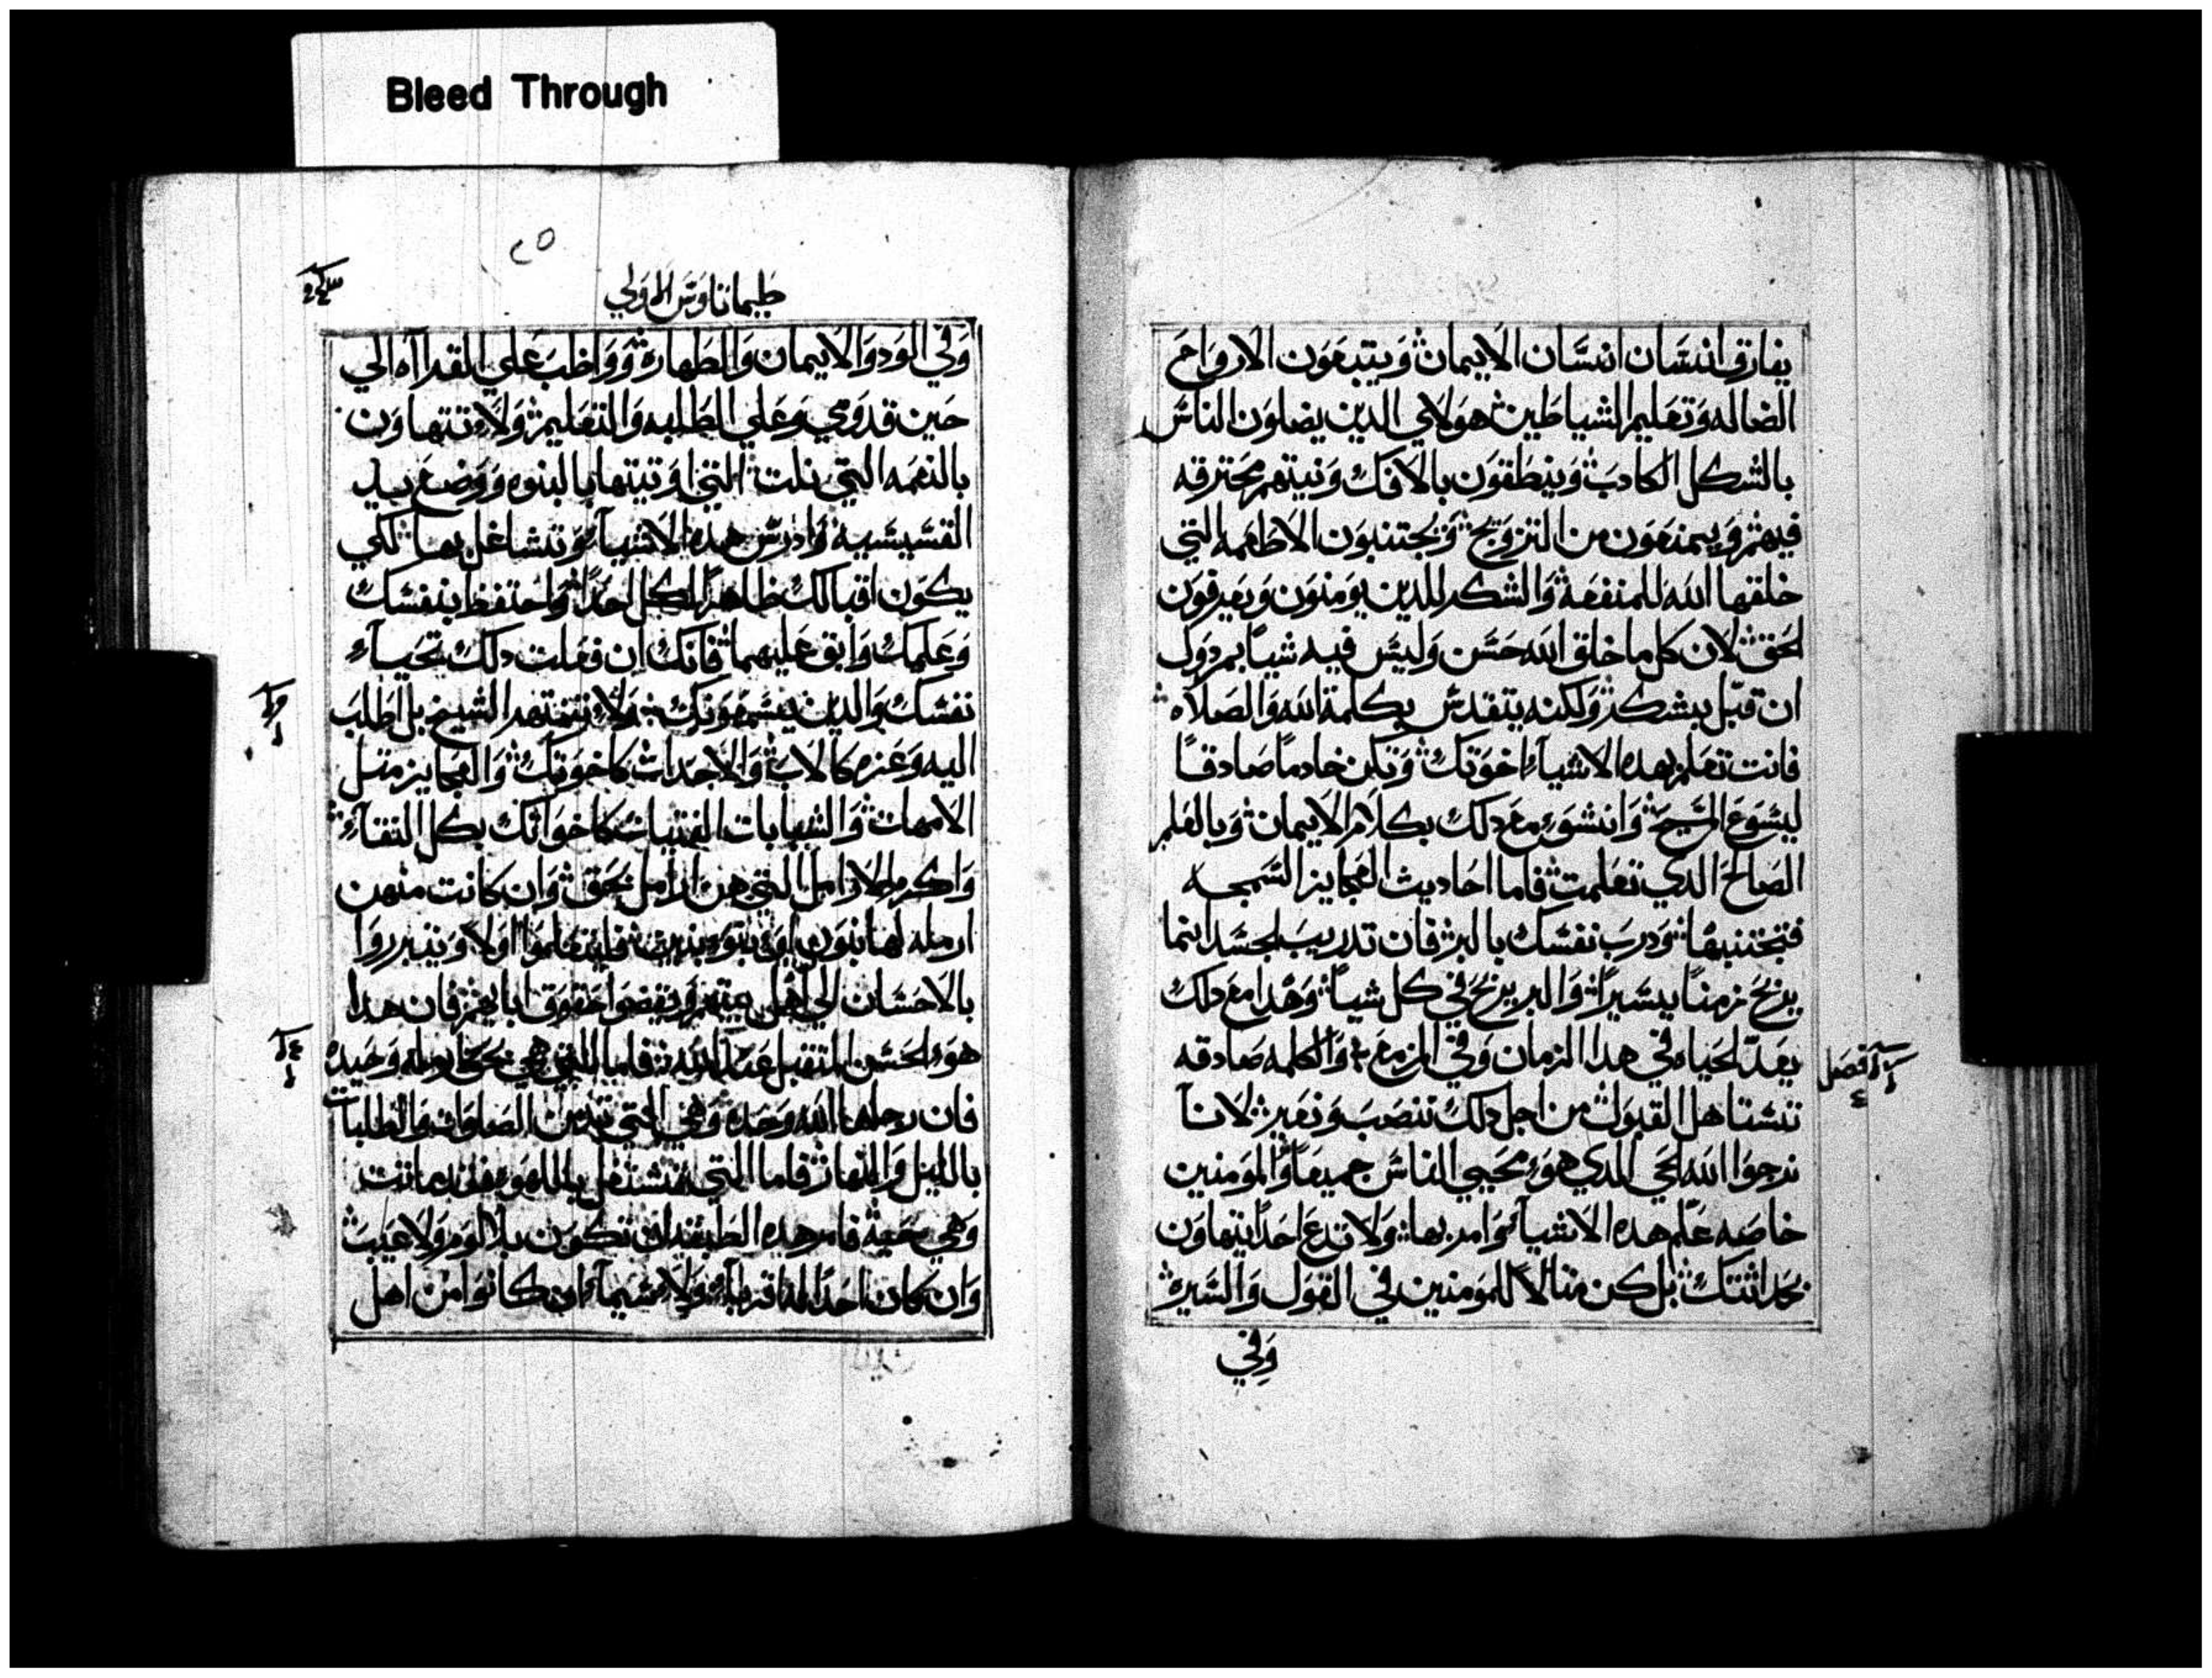 Bleed Through
يفارق انسَان انسَان الايمان وَيتبعَون الاروَاحَ
الضاله وَتعَليم الشياطين هوَلاي الدين يضلوَن الناسَ
بالشكل الكادبَ وَينطَقوَن بالافكَ وَنيتهم محَترقه
فيهم وَيمنعَون من التزوَيج وَيجتنبوَن الاطعَمه التي
خلقها الله للمنفعَة وَالشكر للدين يوَمنوَن وَيعَرفوَن
الحَق لان كل ما خلق الله حَسَن وَليسَ فيه شيا يمردوَل
ان قبّل بشكر وَلكنه يتقدسَ بكلمة الله وَالصَلاه
فانت تعَلم بهده الاشيآء اخوَتكَ وَتكن خادماً صَادقاً
ليسَوَع المسَيحَ وَانشوَء معَ دلكَ بكلام الايمان وَبالعَلم
الصَالحَ الدي تعَلمت فاما احَاديث العَجايز السَمجه
فتجتنبها وَدربَ نفسَكَ بالبر فان تدريبَ الجسَد انما
يربحَ زمناً يسَيراً وَالبر يربحَ في كل شياً وَهدا معَ دلكَ
يعَدّ الحَياه في هدا الزمان وَفي المزمعَ وَالكلمه صَادقه
فصَل
٤
تسَتاهل القبوَل من اجل دلكَ ننصَبَ وَنعَير لاناَ
نرجوَا الله الحَي الدي هوَء محَيي الناسَ جميعَاً وَالموَمنين
خاصَه علّم هده الاشيآء وَامر بها وَلا تدعَ احَداً يتهاوَن
بحَداثتكَ بل كن مثالاً للموَمنين في القوَل وَالسَيره
وَفي
٢٥
طيماتاوَسَ الاوَلي
وَفي الوَد وَالايمان وَالطَهاره وَوَاظبَ عَلي القراآه الي
حَين قدوَمي وَعَلي الطَلبه وَالتعَليم وَلاء تتهاوَن
بالنعَمه التي نلت التي اوَتيتها بالنبوه وَوَضعَ يد
القسَيسَيه وَادرسَ هده الاشيآء وَتشاغل بها لكي
يكوَن اقبالكَ ظاهراً لكل احَداً وَاحَتفظ بنفسَكَ
وَعَلمكَ وَابق عَليهما فانكَ ان فعَلت دلكَ تحَيآء
نفسَكَ وَالدين يسَمعَوَنكَ وَلاء تنتهر الشيخ بل اطَلبَ
اليه وَعَزه كالابَ وَالاحَداث كاخوَتكَ وَالعَجايز مثل
الامهات وَالشابات الفتيات كاخوَاتكَ بكل النقآء
وَاكرم الارامل التي هن ارامل بحَق وَان كانت منهن
ارمله لها بنوَن اوَء بنوَء بنين فليتعَلموَا اوَلاً وَيتبرروَا
بالاحَسَان الي اهل بيتهم وَيقضوَا حَقوَق ابايهم فان هدا
هوَء الحَسَن المتقبل عَند الله فاما التي هي بحَق ارمله وَحَيده
فان رجاها الله وَحَده وَهي التي تديمن الصَلوَات وَالطَلبات
بالليل وَالنهار فاما التي تشتغل باللهوَء فقد ماتت
وَهي حَيه فامر هده الطَبقه ان تكوَن بلا لوَم وَلا عَيبَ
وَان كان احَداً له اقرباء وَلاء سَيماء ان كانوَا من اهل